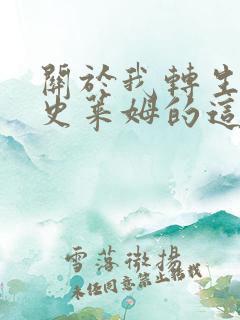 關於我轉生
史萊姆的這
雪落微揚
未经同意禁止转载